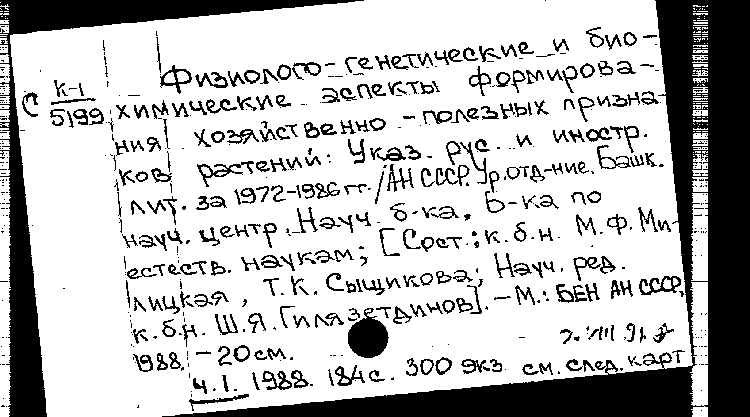 Физиолого-генетические и био-
С К-1
5199
химические аспекты формирова-
ния хозяйственно-полезных призна-
ков растений: Указ. рус. и иностр.
лит. за 1972-1986 гг. / АН СССР. Ур. отд-ние. Башк.
науч. центр. Науч. б-ка, Б-ка по
естеств. наукам; [Сост.: к.б.н. М.Ф. Ми-
лицкая, Т.К. Сыщикова; Науч. ред.
к.б.н. Ш.Я. Гилязетдинов]. – М.: БЕН АН СССР,
1988. – 20 см.
Ч.1. 1988. 184 с. 300 экз. см. след. карт